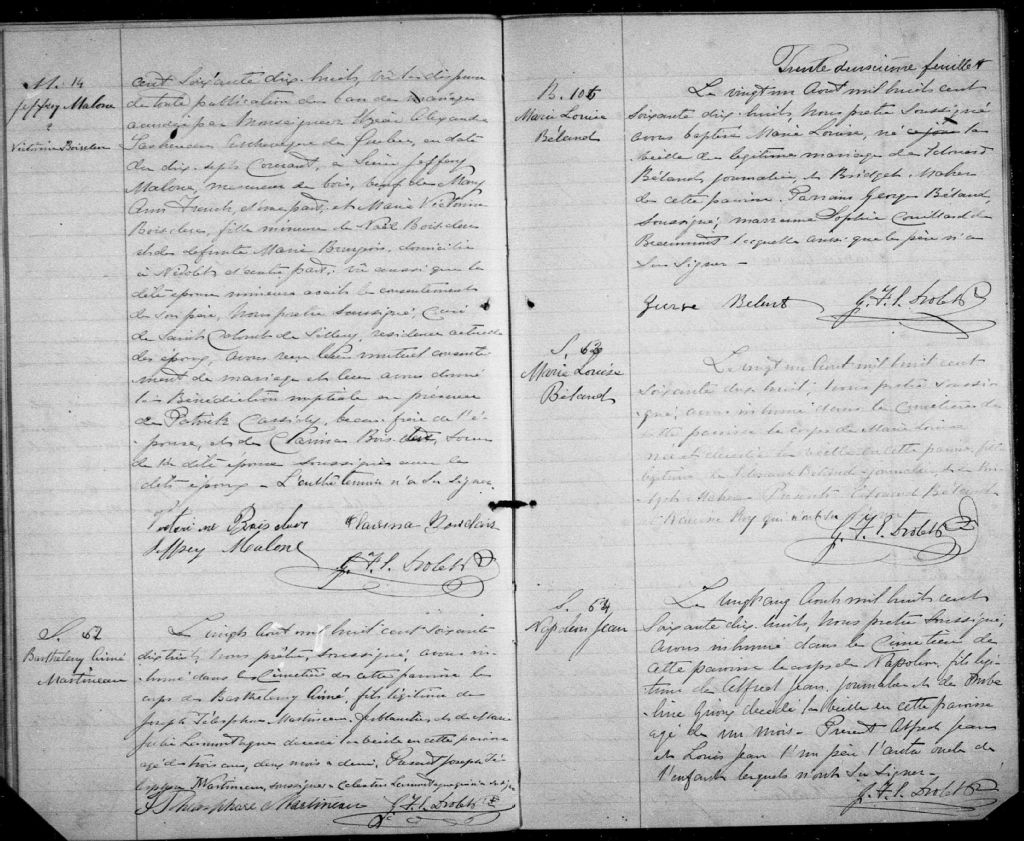 M. 14
Jeffrey Malone
&
Victorine Boisclere
cent soixante dix-huit, vu la dispense
de toute publication des bans de mariage
accordée par Monseigneur Elzéar Alexandre
Taschereau Archevêque de Québec, en date
du dix-sept Courant, à Sieur Jeffrey
Malone, mesureur de bois, veuf de Mary
Ann French, d'une part; et Marie Victorine
Boisclere, fille mineure de Noël Boisclere
et de défunte Marie Bourgois, domiciliée
à Nicolet d'autre part; vu aussi que la
dite épouse mineure avait le consentement
de son père, Nous prêtre Soussigné, Curé
de Saint Colomb de Sillery, résidence actuelle
des époux, avons reçu leur mutuel consente-
ment de mariage et leur avons donné
la Bénédiction nuptiale en présence
de Patrick Cassidy, beau-frère de l'é-
pouse, et de Clarina Bois clere, Soeur
de la dite épouse soussignés avec les
dits époux. L'autre témoin n'a Su Signer.
Victorine Boisclere Clarina Boisclair
Jeffrey Malone
G. F. E. Drolet Ptre
S. 62
Barthelemy Aimé
Martineau
Le vingt Août mil huit cent soixante
dix huit, Nous prêtre, Soussigné, avons in-
humé dans le Cimetière de cette paroisse le
corps de Barthelemy Aimé, fils légitime de
Joseph Télesphore Martineau, ferblantier, et de Marie
Julie Lamontagne décédé la veille en cette paroisse
agé de trois ans, deux mois & demi. Présents Joseph Té-
lesphore Martineau, soussigné & Célestin Lamontagne qui n'a su signer
J Thelesphore Martineau G. F. E. Drolet Ptre
Trente deuxième feuillet
B. 106
Marie Louise
Béland
Le vingt un Août mil huit cent
soixante dix-huit, Nous prêtre Soussigné
avons baptisé Marie Louise, né la
veille du légitime mariage de Edouard
Béland journalier, et Bridget Maher
de cette paroisse. Parrain George Béland,
soussigné; marraine Sophie Couillard de
Beaumont laquelle ainsi que le père n'a
Su Signer.
George Beland G. F. E. Drolet Ptre
S. 63
Marie Louise
Béland
Le vingt un Août mil huit cent
soixante dix huit, Nous prêtre Soussi-
gné, avons inhumé dans le Cimetière de
cette paroisse le corps de Marie Louise
née et décédée la veille en cette paroisse, fille
légitime de Edouard Béland journalier, et de Bri-
dget Maher. Présents Edouard Béland
& Roy qui n'ont su signer
G. F. E. Drolet Ptre
S. 64
Napoléon Jean
Le vingt cinq Août mil huit cent
soixante dix-huit, Nous prêtre Soussigné,
avons inhumé dans le Cimetière de
cette paroisse le corps de Napoléon, fils légi-
time de Alfred Jean, journalier et de
décédé la veille en cette paroisse
agé de un mois. Présent Alfred Jean
et Louis Jean l'un père l'autre oncle de
l'enfant lesquels n'ont Su Signer.
G. F. E. Drolet Ptre